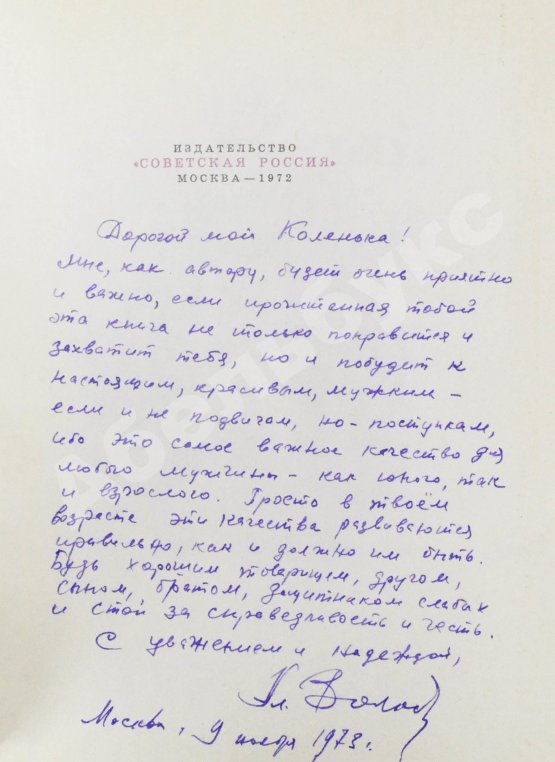 ИЗДАТЕЛЬСТВО
«СОВЕТСКАЯ РОССИЯ»
МОСКВА—1972
Дорогой мой Коленька!
Мне, как автору, будет очень приятно
и важно, если прочитанная тобой
эта книга не только понравится и
захватит тебя, но и побудит к
настоящим, красивым, мужским –
если и не подвигам, но – поступкам,
ибо это самое важное качество для
любого мужчины – как юного, так
и взрослого. Просто в твоём
возрасте эти качества развиваются
правильно, как и должно им быть.
Будь хорошим товарищем, другом,
сыном, братом, защитником слабых
и стой за справедливость и честь.
С уважением и надеждой,
Москва, 9 ноября 1973 г.